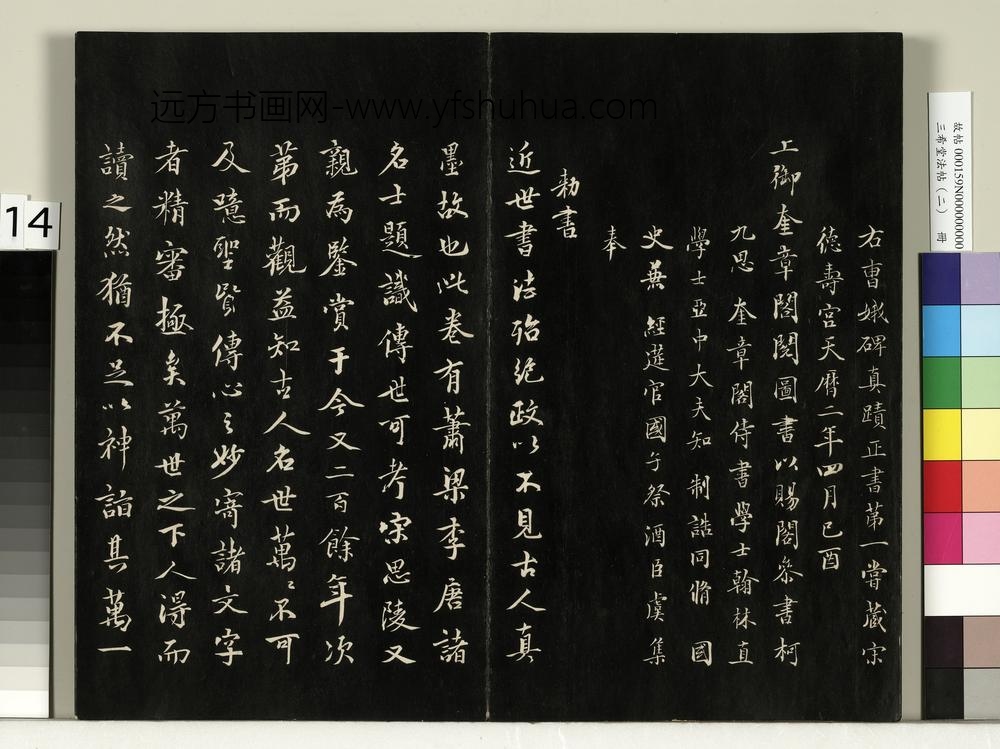 右曹娥碑真蹟正書第一嘗藏宗
德壽宮天曆二年四月己酉
上御奎章閣閱圖書以賜閣參書柯
九思奎章閣侍書學士翰林直
學士亞中大夫知制誥同脩國
史兼經筵官國子祭酒臣虞集
奉
勅書
近世書法殆絕政以不見古人真
墨故也此卷有蕭梁李唐諸
名士題識傳世可考宋思陵又
親為鑒賞于今又二百餘年次
第而觀益知古人名世萬萬不可
及噫聖賢傳心之妙寄諸文字
者精審極矣萬世之下人得而
讀之然猶不足以神詣其萬一
远方书画网-www.yfshuhua.com
故帖 000159N000000000
三希堂法帖（二） 冊
14